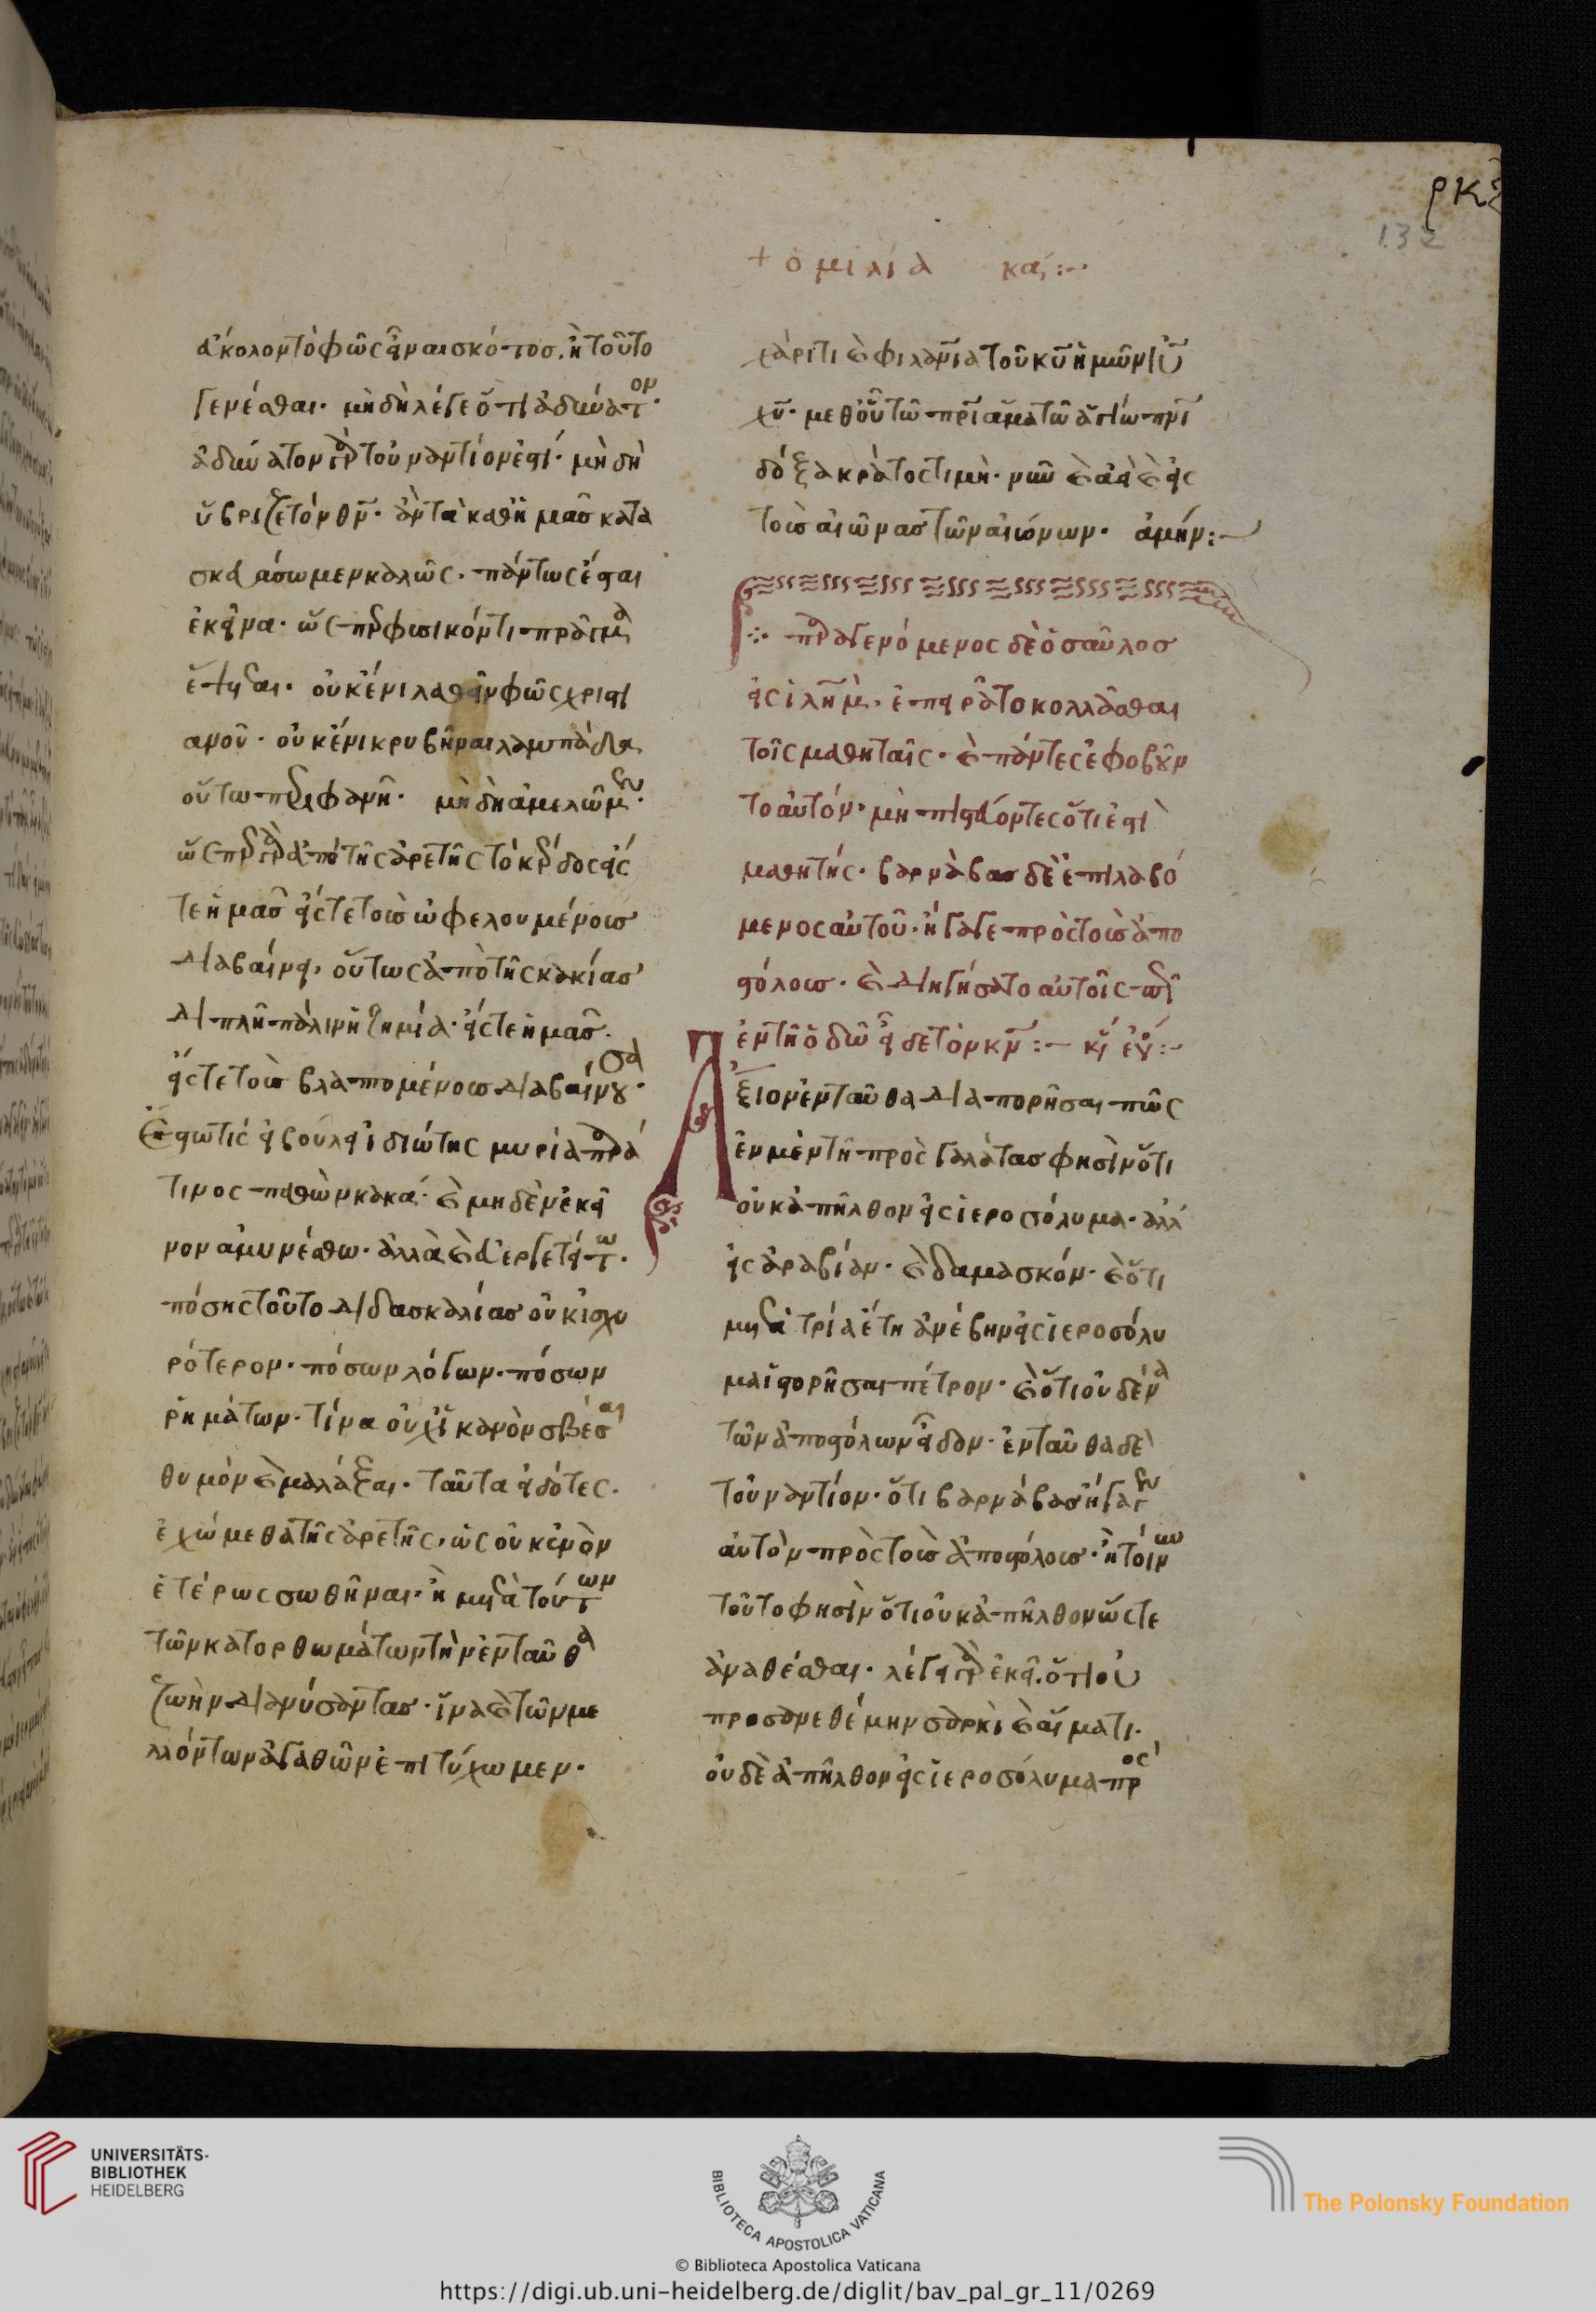 ρκζ
132
+ ὁμιλία κα :~
εὐκολον τὸ φῶς εἶναι σκότος, ἢ τοῦτο
γενέσθαι· μὴ δὴ λέγε ὅτι ἀδύνατον·
ἀδύνατον γὰρ τοὐναντίον ἐστί· μὴ δὴ
ὕβριζε τὸν θν̅· ἂν τὰ καθ' ἡμᾶς κατα
σκευάσωμεν καλῶς· πάντως ἔσται
ἐκεῖνα· ὡς περ φυσικόν τι πρᾶγμα
ἕπεται· οὐκ ἔνι λαθεῖν φῶς χριστι
ανοῦ· οὐκ ἔνι κρυβῆναι λαμπάδα
οὕτω περιφανῆ· μὴ δὴ ἀμελῶμεν·
ὥσπερ γὰρ ἀπὸ τῆς ἀρετῆς τὸ κέρδος εἴς
τε ἡμᾶς εἴς τε τοὺς ὠφελουμένους
διαβαίνει, οὕτως ἀπὸ τῆς κακίας
διπλῆ πάλιν ἡ ζημία· εἴς τε ἡμᾶς·
εἴς τε τοὺς βλαπτομένους διαβαίνουσα·
Ἔστω τίς εἰ βούλει ἰδιώτης μυρία παρά
τινος παθὼν κακά· καὶ μηδὲν ἐκεῖ
νον ἀμυνέσθω· ἀλλὰ καὶ εὐεργετείτω·
πόσης τοῦτο διδασκαλίας οὐκ ἰσχυ
ρότερον· πόσων λόγων· πόσων
ῥημάτων· τίνα οὐχ ἱκανὸν σβέσαι
θυμὸν καὶ μαλάξαι· ταῦτα εἰδότες·
ἐχώμεθα τῆς ἀρετῆς, ὡς οὐκ ἐνὸν
ἑτέρως σωθῆναι· ἢ μετὰ τούτων
τῶν κατορθωμάτων τὴν ἐνταῦθα
ζωὴν διανύσαντας· ἵνα καὶ τῶν με
λλόντων ἀγαθῶν ἐπιτύχωμεν·
χάριτι καὶ φιλαν̅ία τοῦ κυ̅ ἡμῶν ιυ̅
χυ̅· μεθ' οὗ τῶ πρι̅ ἅμα τῶ ἁγίω πνι̅
δόξα κράτος τιμὴ· νῦν καὶ ἀεὶ καὶ εἰς
τοὺς αἰῶνας τῶν αἰώνων· ἀμήν :~
παραγενόμενος δὲ ὁ σαῦλος
εἰς ἱλημ̅, ἐπειρᾶτο κολλᾶσθαι
τοῖς μαθηταῖς· καὶ πάντες ἐφοβοῦν
το αὐτόν· μὴ πιστεύοντες ὅτι ἐστὶ
μαθητής· βαρνάβας δὲ ἐπιλαβό
μενος αὐτοῦ· ἤγαγε πρὸς τοὺς ἀπο
στόλους· καὶ διηγήσατο αὐτοῖς πῶς
ἐν τῆ ὁδῶ εἶδε τὸν κν̅ :~
Ἄξιον ἐνταῦθα διαπορῆσαι πῶς
ἐν μὲν τῆ πρὸς γαλάτας φησὶν ὅτι
οὐκ ἀπῆλθον εἰς ἱεροσόλυμα· ἀλλ'
εἰς ἀραβίαν· καὶ δαμασκόν· καὶ ὅτι
μετὰ τρία ἔτη ἀνέβην εἰς ἱεροσόλυ
μα ἱστορῆσαι πέτρον· καὶ ὅτι οὐδένα
τῶν ἀποστόλων εἶδον· ἐνταῦθα δὲ
τοὐναντίον· ὅτι βαρνάβας ἤγαγεν
αὐτὸν πρὸς τοὺς ἀποστόλους· ἢ τοίνυν
τοῦτο φησὶν ὅτι οὐκ ἀπῆλθον ὥστε
ἀναθέσθαι· λέγει γὰρ ἐκεῖ· ὅτι οὐ
προσανεθέμην σαρκὶ καὶ αἵματι·
οὐδὲ ἀπῆλθον εἰς ἱεροσόλυμα πρὸς
UNIVERSITÄTS-
BIBLIOTHEK
HEIDELBERG
BIBLIOTECA APOSTOLICA VATICANA
© Biblioteca Apostolica Vaticana
The Polonsky Foundation
https://digi.ub.uni-heidelberg.de/diglit/bav_pal_gr_11/0269